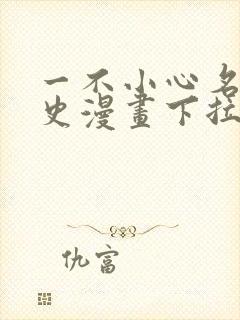 一不小心名
史漫畫下拉
仇富